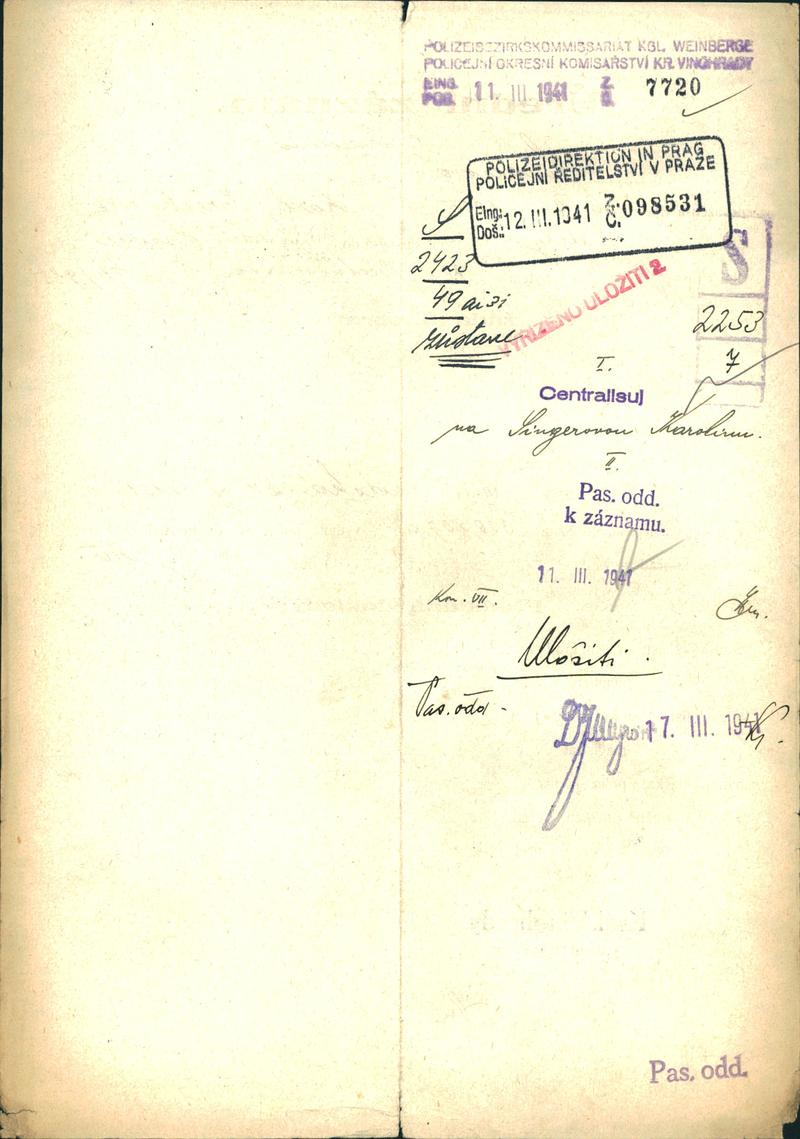 POLIZEIBEZIRKSKOMMISSARIAT KGL. WEINBERGE
POLICEJNÍ OKRESNÍ KOMISAŘSTVÍ KR. VINOHRADY
EING. POD. 11. III. 1941 Z. Č. 7720
POLIZEIDIREKTION IN PRAG
POLICEJNÍ ŘEDITELSTVÍ V PRAZE
Eing: Doš.: 12. III. 1941 Z. Č. 098531
S
S
2423
49 ai 31
VYŘÍZENO ULOŽITI 2
zůstane
2253
7
I.
Centralisuj
na Singerovou Karolinu.
II.
Pas. odd.
k záznamu.
11. III. 1941
Kom. VII.
Uložiti.
Pas. odd.
17. III. 1941
Pas. odd.